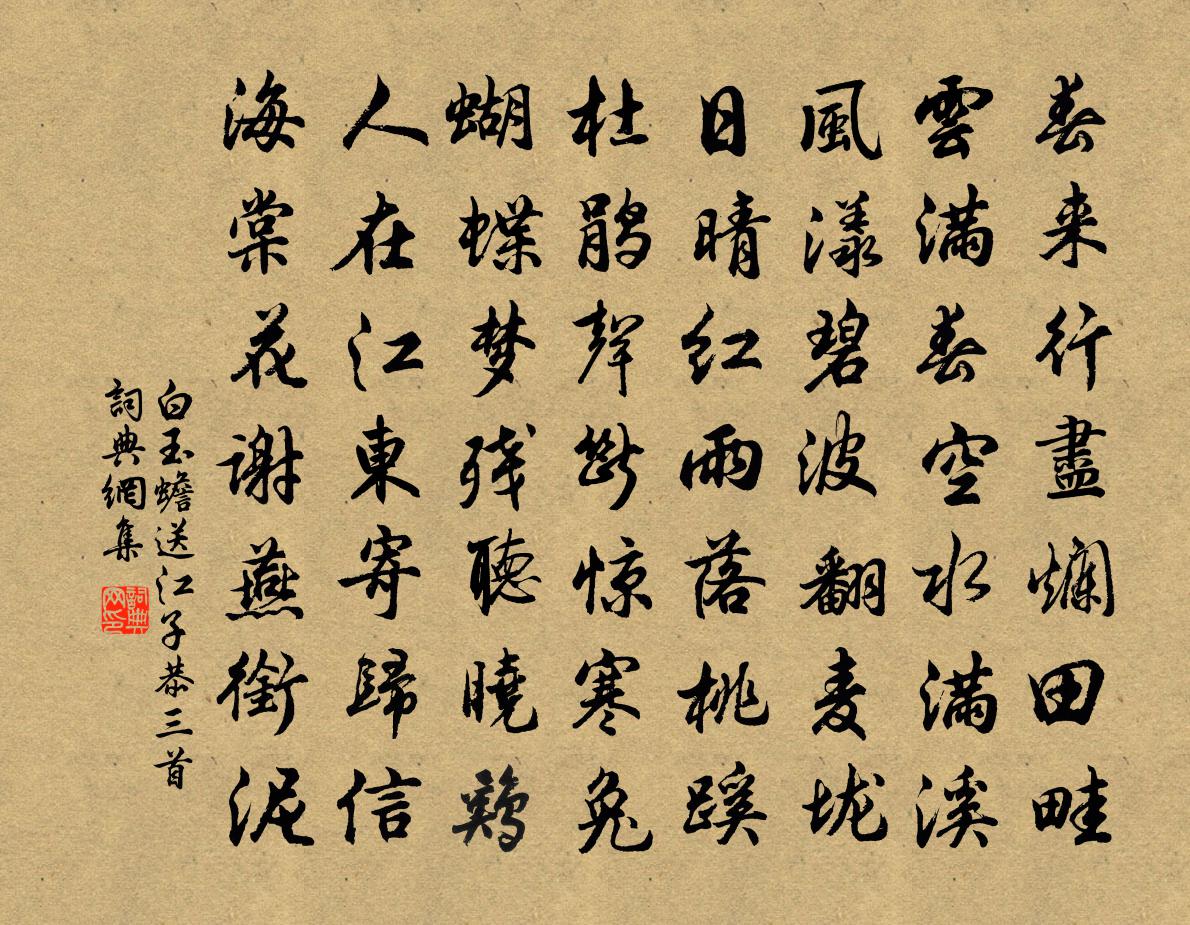 春来行盡爛田畦
雲滿春空水滿溪
風漾碧波翻麦垅
日晴红雨落桃蹊
杜鹃聲斷惊寒兔
蝴蝶梦残聽曉鷄
人在江東寄歸信
海棠花谢燕銜泥
白玉蟾送江子恭三首
詞典網集
詞典网印